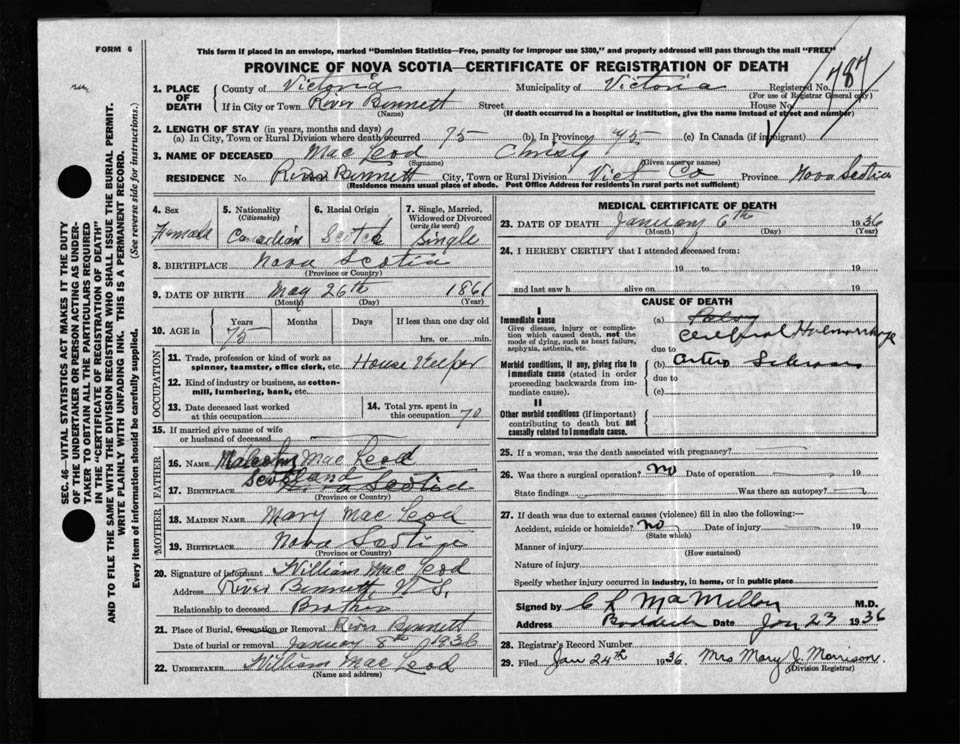 FORM 6
This form if placed in an envelope, marked "Dominion Statistics—Free, penalty for improper use $300," and properly addressed will pass through the mail "FREE"
PROVINCE OF NOVA SCOTIA—CERTIFICATE OF REGISTRATION OF DEATH
SEC. 46—VITAL STATISTICS ACT MAKES IT THE DUTY
OF THE UNDERTAKER OR PERSON ACTING AS UNDER-
TAKER TO OBTAIN ALL THE PARTICULARS REQUIRED
IN THE "CERTIFICATE OF REGISTRATION OF DEATH"
AND TO FILE THE SAME WITH THE DIVISION REGISTRAR WHO SHALL ISSUE THE BURIAL PERMIT.
WRITE PLAINLY WITH UNFADING INK. THIS IS A PERMANENT RECORD.
Every item of information should be carefully supplied. (See reverse side for instructions.)
1. PLACE OF DEATH County of Victoria Municipality of Victoria Registered No. 787
(For use of Registrar General only)
If in City or Town River Bennett Street House No.
(Name) (If death occurred in a hospital or institution, give the name instead of street and number)
2. LENGTH OF STAY (in years, months and days)
(a) In City, Town or Rural Division where death occurred 75 (b) In Province 75 (c) In Canada (if immigrant)
3. NAME OF DECEASED Mac Leod Christy
(Surname) (Given name or names)
RESIDENCE No. River Bennett City, Town or Rural Division Vict Co Province Nova Scotia
(Residence means usual place of abode. Post Office Address for residents in rural parts not sufficient)
4. Sex Female
5. Nationality (Citizenship) Canadian
6. Racial Origin Scotch
7. Single, Married, Widowed or Divorced (write the word) Single
8. BIRTHPLACE Nova Scotia
(Province or Country)
9. DATE OF BIRTH May 26th 1861
(Month) (Day) (Year)
10. AGE in Years Months Days If less than one day old
75 hrs. or min.
OCCUPATION
11. Trade, profession or kind of work as spinner, teamster, office clerk, etc. House Keeper
12. Kind of industry or business, as cotton-mill, lumbering, bank, etc.
13. Date deceased last worked at this occupation
14. Total yrs. spent in this occupation 70
15. If married give name of wife or husband of deceased
FATHER
16. Name Malcolm Mac Leod
Scotland
17. Birthplace Nova Scotia
(Province or Country)
MOTHER
18. Maiden Name Mary Mac Leod
19. Birthplace Nova Scotia
(Province or Country)
20. Signature of informant William Mac Leod
Address River Bennett, N.S.
Relationship to deceased Brother
21. Place of Burial, Cremation or Removal River Bennett
Date of burial or removal January 8th 1936
22. UNDERTAKER William Mac Leod
(Name and address)
MEDICAL CERTIFICATE OF DEATH
23. DATE OF DEATH January 6th 1936
(Month) (Day) (Year)
24. I HEREBY CERTIFY that I attended deceased from:
19 to 19
and last saw h alive on 19
CAUSE OF DEATH
I
Immediate cause
Give disease, injury or complication which caused death, not the mode of dying, such as heart failure, asphyxia, asthenia, etc.
(a) Cerebral Haemorrhage
due to
Morbid conditions, if any, giving rise to immediate cause (stated in order proceeding backwards from immediate cause).
(b) Arterio Sclerosis
due to
(c)
II
Other morbid conditions (if important) contributing to death but not causally related to immediate cause.
25. If a woman, was the death associated with pregnancy?
26. Was there a surgical operation? No Date of operation 19
State findings Was there an autopsy?
27. If death was due to external causes (violence) fill in also the following:—
Accident, suicide or homicide? No Date of injury 19
(State which)
Manner of injury
(How sustained)
Nature of injury
Specify whether injury occurred in industry, in home, or in public place
Signed by C L MacMillan M.D.
Address Baddeck Date Jan 23 1936
28. Registrar's Record Number
29. Filed Jan 24th 1936. Mrs Mary J. Morrison.
(Division Registrar)